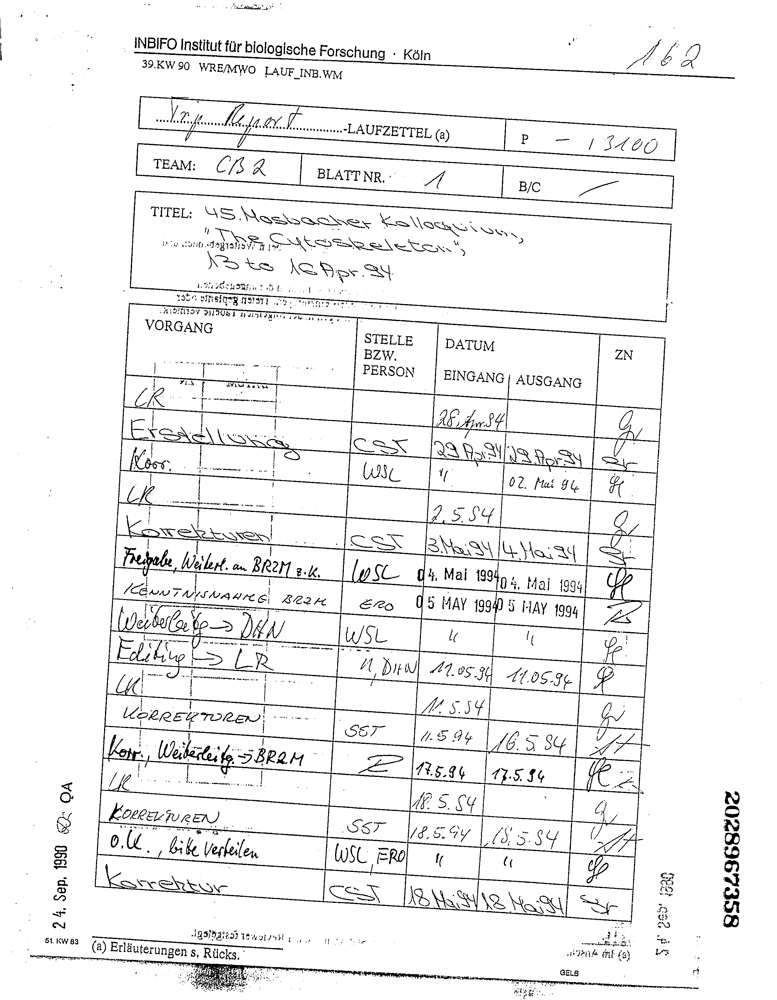 INBIFO Institut für biologische Forschung · Köln
162
39.KW 90 WRE/MWO LAUF_INB.WM
Trip Report -LAUFZETTEL (a)
P - 13100
TEAM: CB2
BLATT NR. 1
B/C /
TITEL: 45. Mosbacher Kolloquium,
"The Cytoskeleton",
13 to 16 Apr. 94
VORGANG
STELLE BZW. PERSON
DATUM
EINGANG AUSGANG
ZN
LR 28. Apr. 94
Erstellung CST 29 Apr. 94 29 Apr. 94
Korr. WSL " 02. Mai 94
LR 2.5.94
Korrekturen CST 3. Mai 94 4. Mai 94
Freigabe, Weiterl. an BR2M z.K. WSL 04. Mai 1994 04. Mai 1994
KENNTNISNAHME BR2M ERO 05 MAY 1994 05 MAY 1994
Weiterleitg → DHN WSL " "
Editing → LR ", DHN 11.05.94 11.05.94
LR 11.5.94
KORREKTUREN SST 11.5.94 16.5.94
Korr., Weiterleitg. → BR2M 17.5.94 17.5.94
LR 18.5.94
KORREKTUREN SST 18.5.94 18.5.94
O.K., bitte verteilen WSL, ERO " "
Korrektur CST 18 Mai 94 18 Mai 94
24. Sep. 1990 QA
2028967358
51. KW 83
(a) Erläuterungen s. Rücks.
GELB